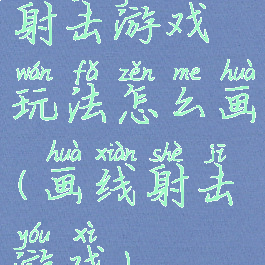 射击游戏
wán fǎ zěn me huà
玩法怎么画
huà xiàn shè jī
(画线射击
yóu xì
游戏)